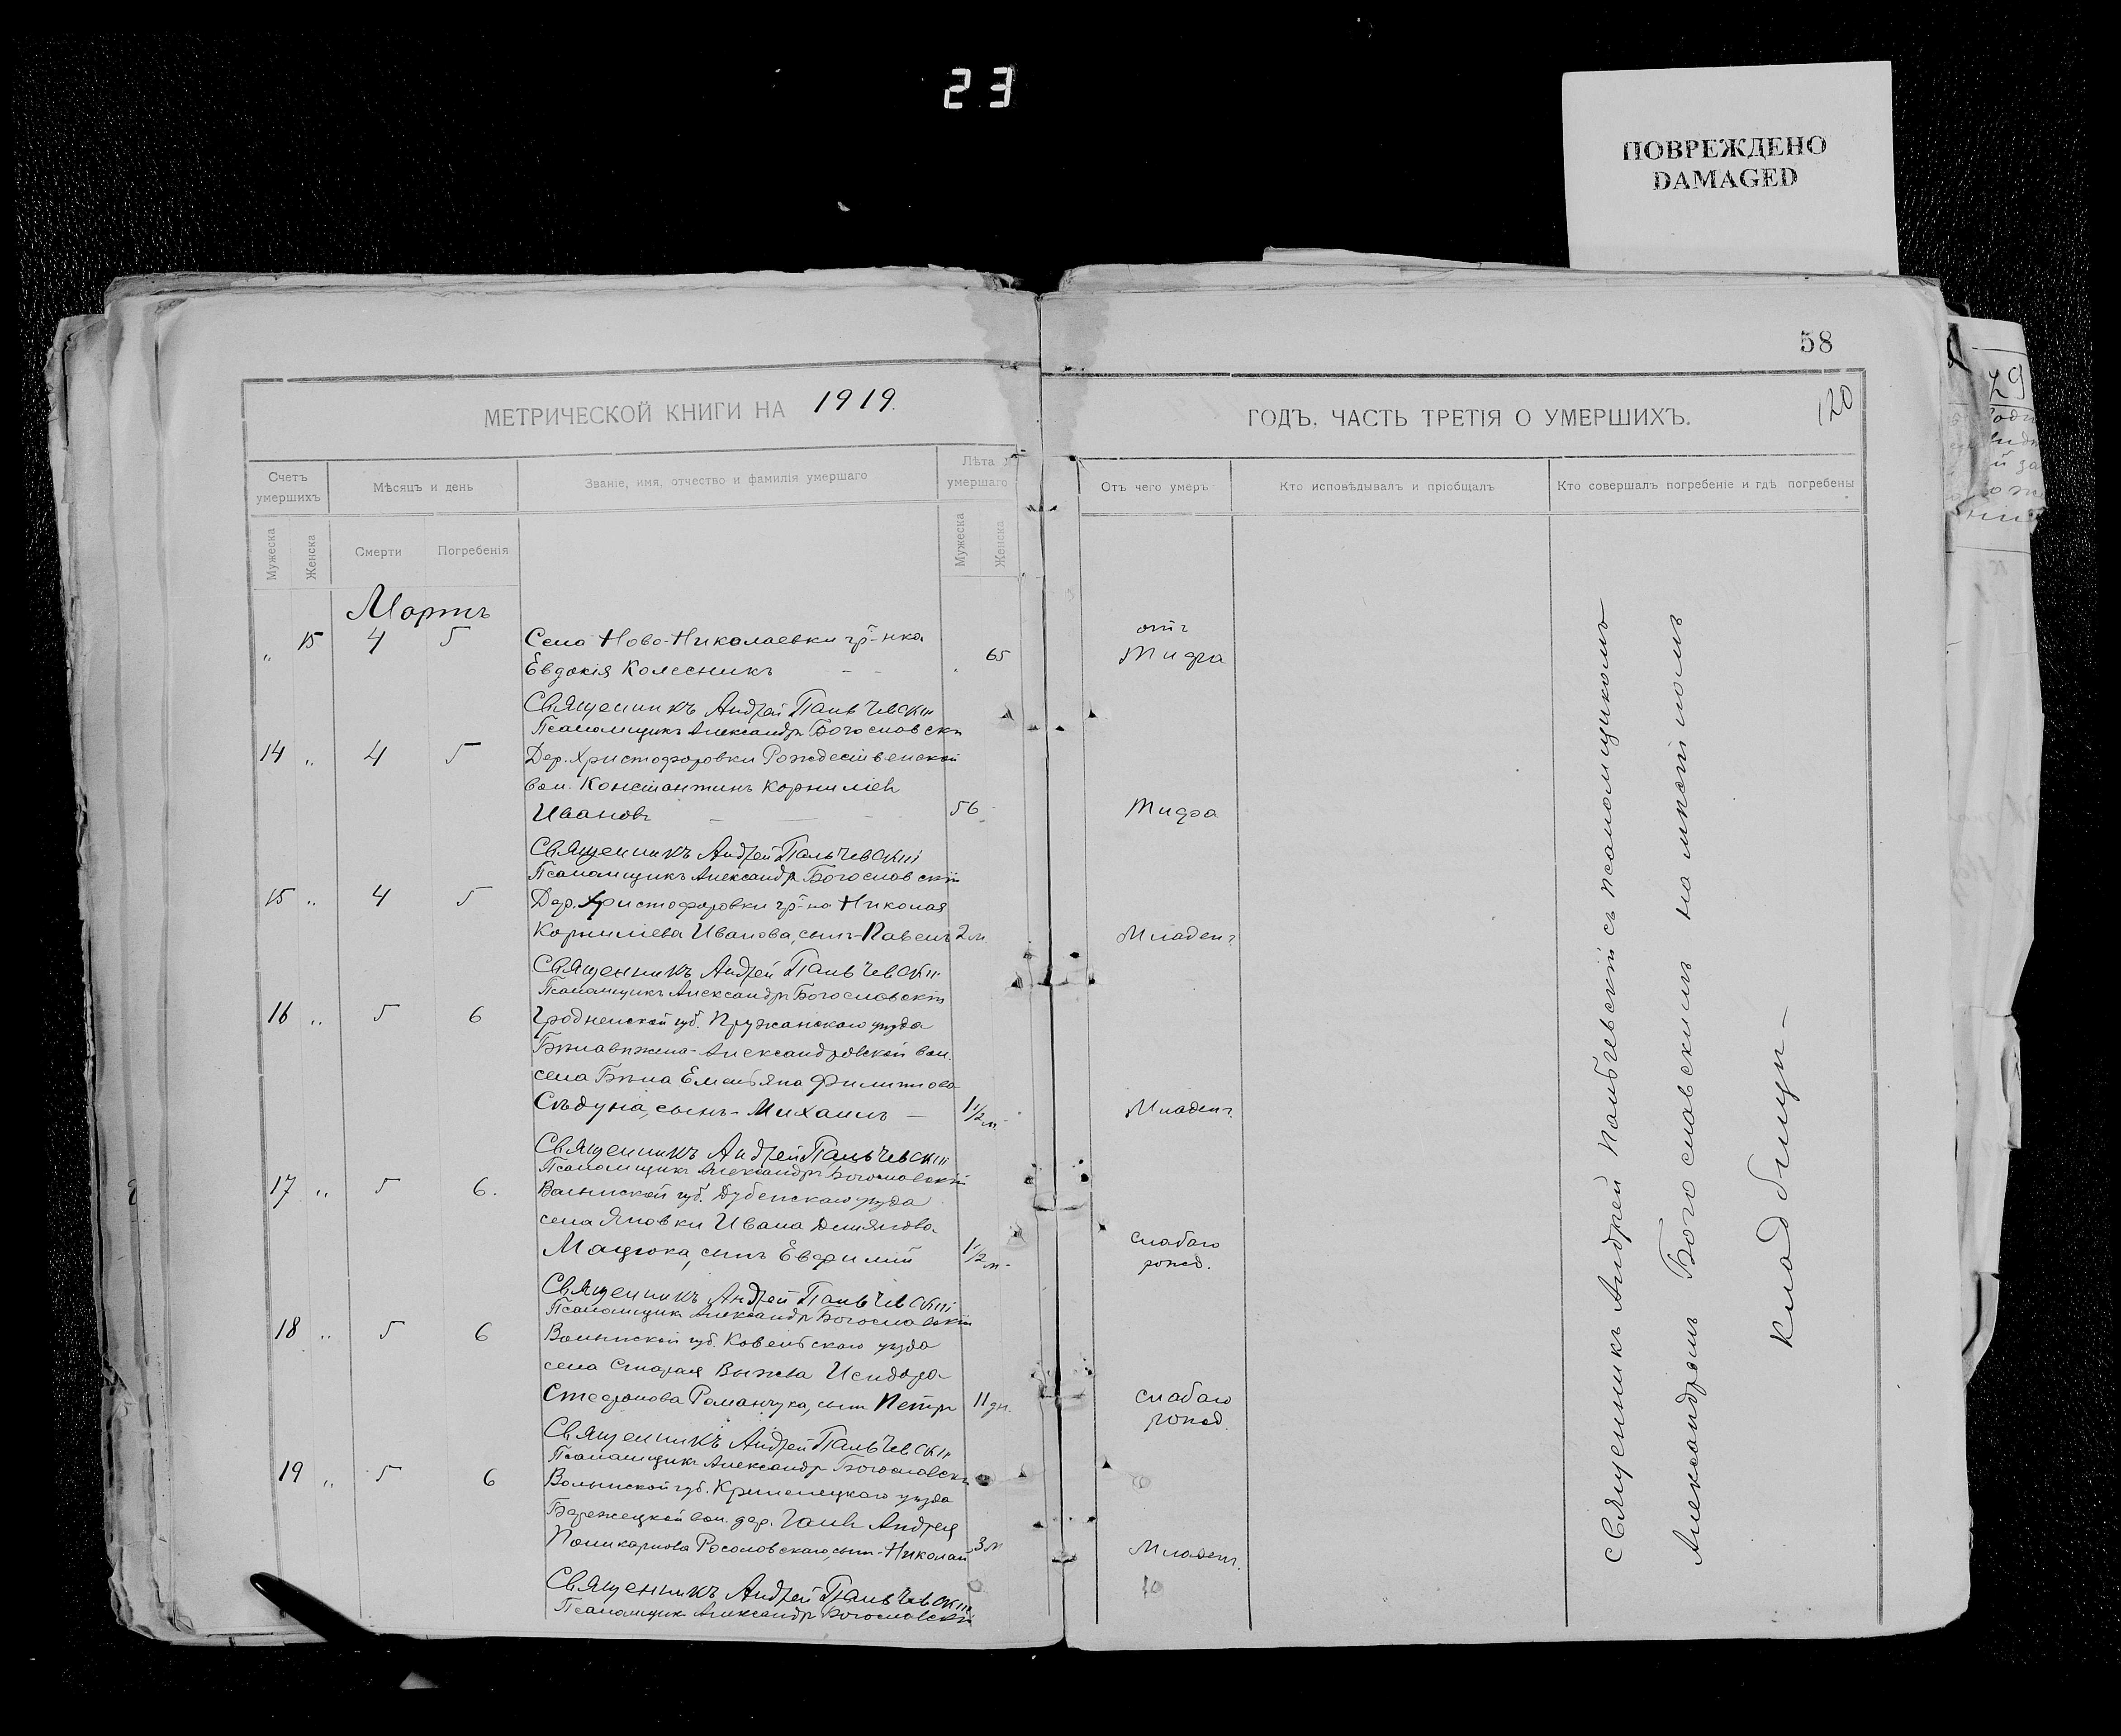 23
ПОВРЕЖДЕНО
DAMAGED
58
120
МЕТРИЧЕСКОЙ КНИГИ НА 1919
ГОДЪ, ЧАСТЬ ТРЕТІЯ О УМЕРШИХЪ.
Счетъ умершихъ
Мѣсяцъ и день
Званіе, имя, отчество и фамилія умершаго
Лѣта умершаго
Отъ чего умеръ
Кто исповѣдывалъ и пріобщалъ
Кто совершалъ погребеніе и гдѣ погребены
Мужеска
Женска
Смерти
Погребенія
Мужеска
Женска
Мартъ
„ 15 4 5 Села Ново-Николаевки гр-нка
Евдокія Колесникъ 65 отъ тифа
Священникъ Андрей Пальчевскій
Псаломщикъ Александръ Богословскій
14 „ 4 5 Дер. Христофоровки Рождественской
вол. Константинъ Корниліевъ
Ивановъ 56 Тифа
Священникъ Андрей Пальчевскій
Псаломщикъ Александръ Богословскій
15 „ 4 5 Дер. Христофоровки гр-на Николая
Корниліева Иванова, сынъ-Павелъ 2 м. Младен.
Священникъ Андрей Пальчевскій
Псаломщикъ Александръ Богословскій
16 „ 5 6 Гродненской губ. Пружанскаго уезда
Александровской вол.
села Емельяна Филиппова
сынъ-Михаилъ 1 1/2 м. Младен.
Священникъ Андрей Пальчевскій
Псаломщикъ Александръ Богословскій
17 „ 5 6. Волынской губ. Дубенскаго уезда
села Яновки Ивана Демянова
Мацюка, сынъ Евфимій 1 1/2 м. слабаго рожд.
Священникъ Андрей Пальчевскій
Псаломщикъ Александръ Богословскій
18 „ 5 6 Волынской губ. Ковельскаго уезда
села Старая Выжва Исидора
Стефанова Романчука, сынъ Петръ 11 дн. слабаго рожд.
Священникъ Андрей Пальчевскій
Псаломщикъ Александръ Богословскій
19 „ 5 6 Волынской губ. Кременецкаго уезда
Бережецкой вол. дер. Андрея
Поликарпова Росоловскаго, сынъ-Николай 3 м Младен.
Священникъ Андрей Пальчевскій
Псаломщикъ Александръ Богословскій
Священникъ Андрей Пальчевскій съ псаломщикомъ
Александромъ Богославскимъ на мѣстномъ
кладбищѣ